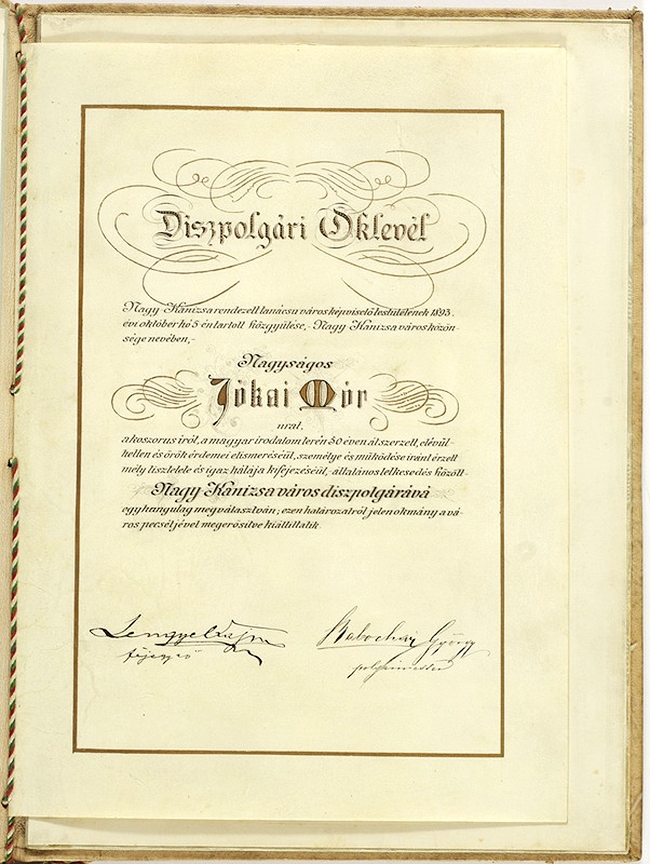 Diszpolgári Oklevél
Nagy-Kanizsa rendezett tanácsu város képviselőtestületének 1893.
évi október hó 5 én tartott közgyűlése,- Nagy Kanizsa város közön-
sége nevében,-
Nagyságos
Jókai Mór
urat,
a koszorus irót, a magyar irodalom terén 50 éven át szerzett, elévül-
hetlen és örök érdemei elismeréseül, személye és működése iránt érzett
mély tisztelete és igaz hálája kifejezéseül,- általános lelkesedés között-
Nagy Kanizsa város diszpolgárává
egyhangulag megválasztván; ezen határozatról jelen okmány a vá-
ros pecsétjével megerősitve kiállittatik.
Lengyel Lajos Babochay György
főjegyző polgármester